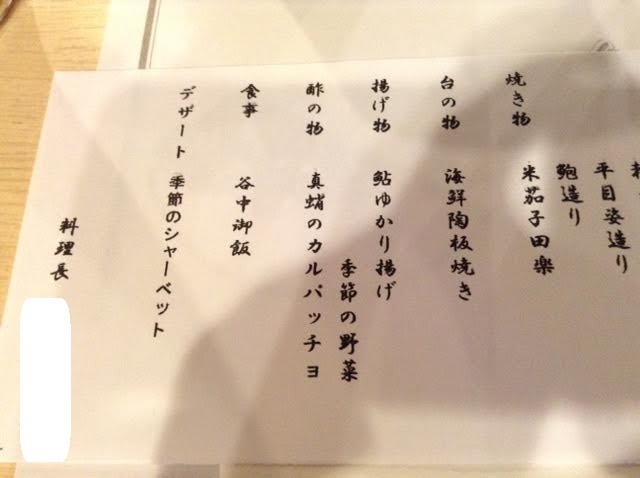 平目姿造り
鮑造り
焼き物 米茄子田楽
台の物 海鮮陶板焼き
揚げ物 鮎ゆかり揚げ
季節の野菜
酢の物 真蛸のカルパッチョ
食事 谷中御飯
デザート 季節のシャーベット
料理長